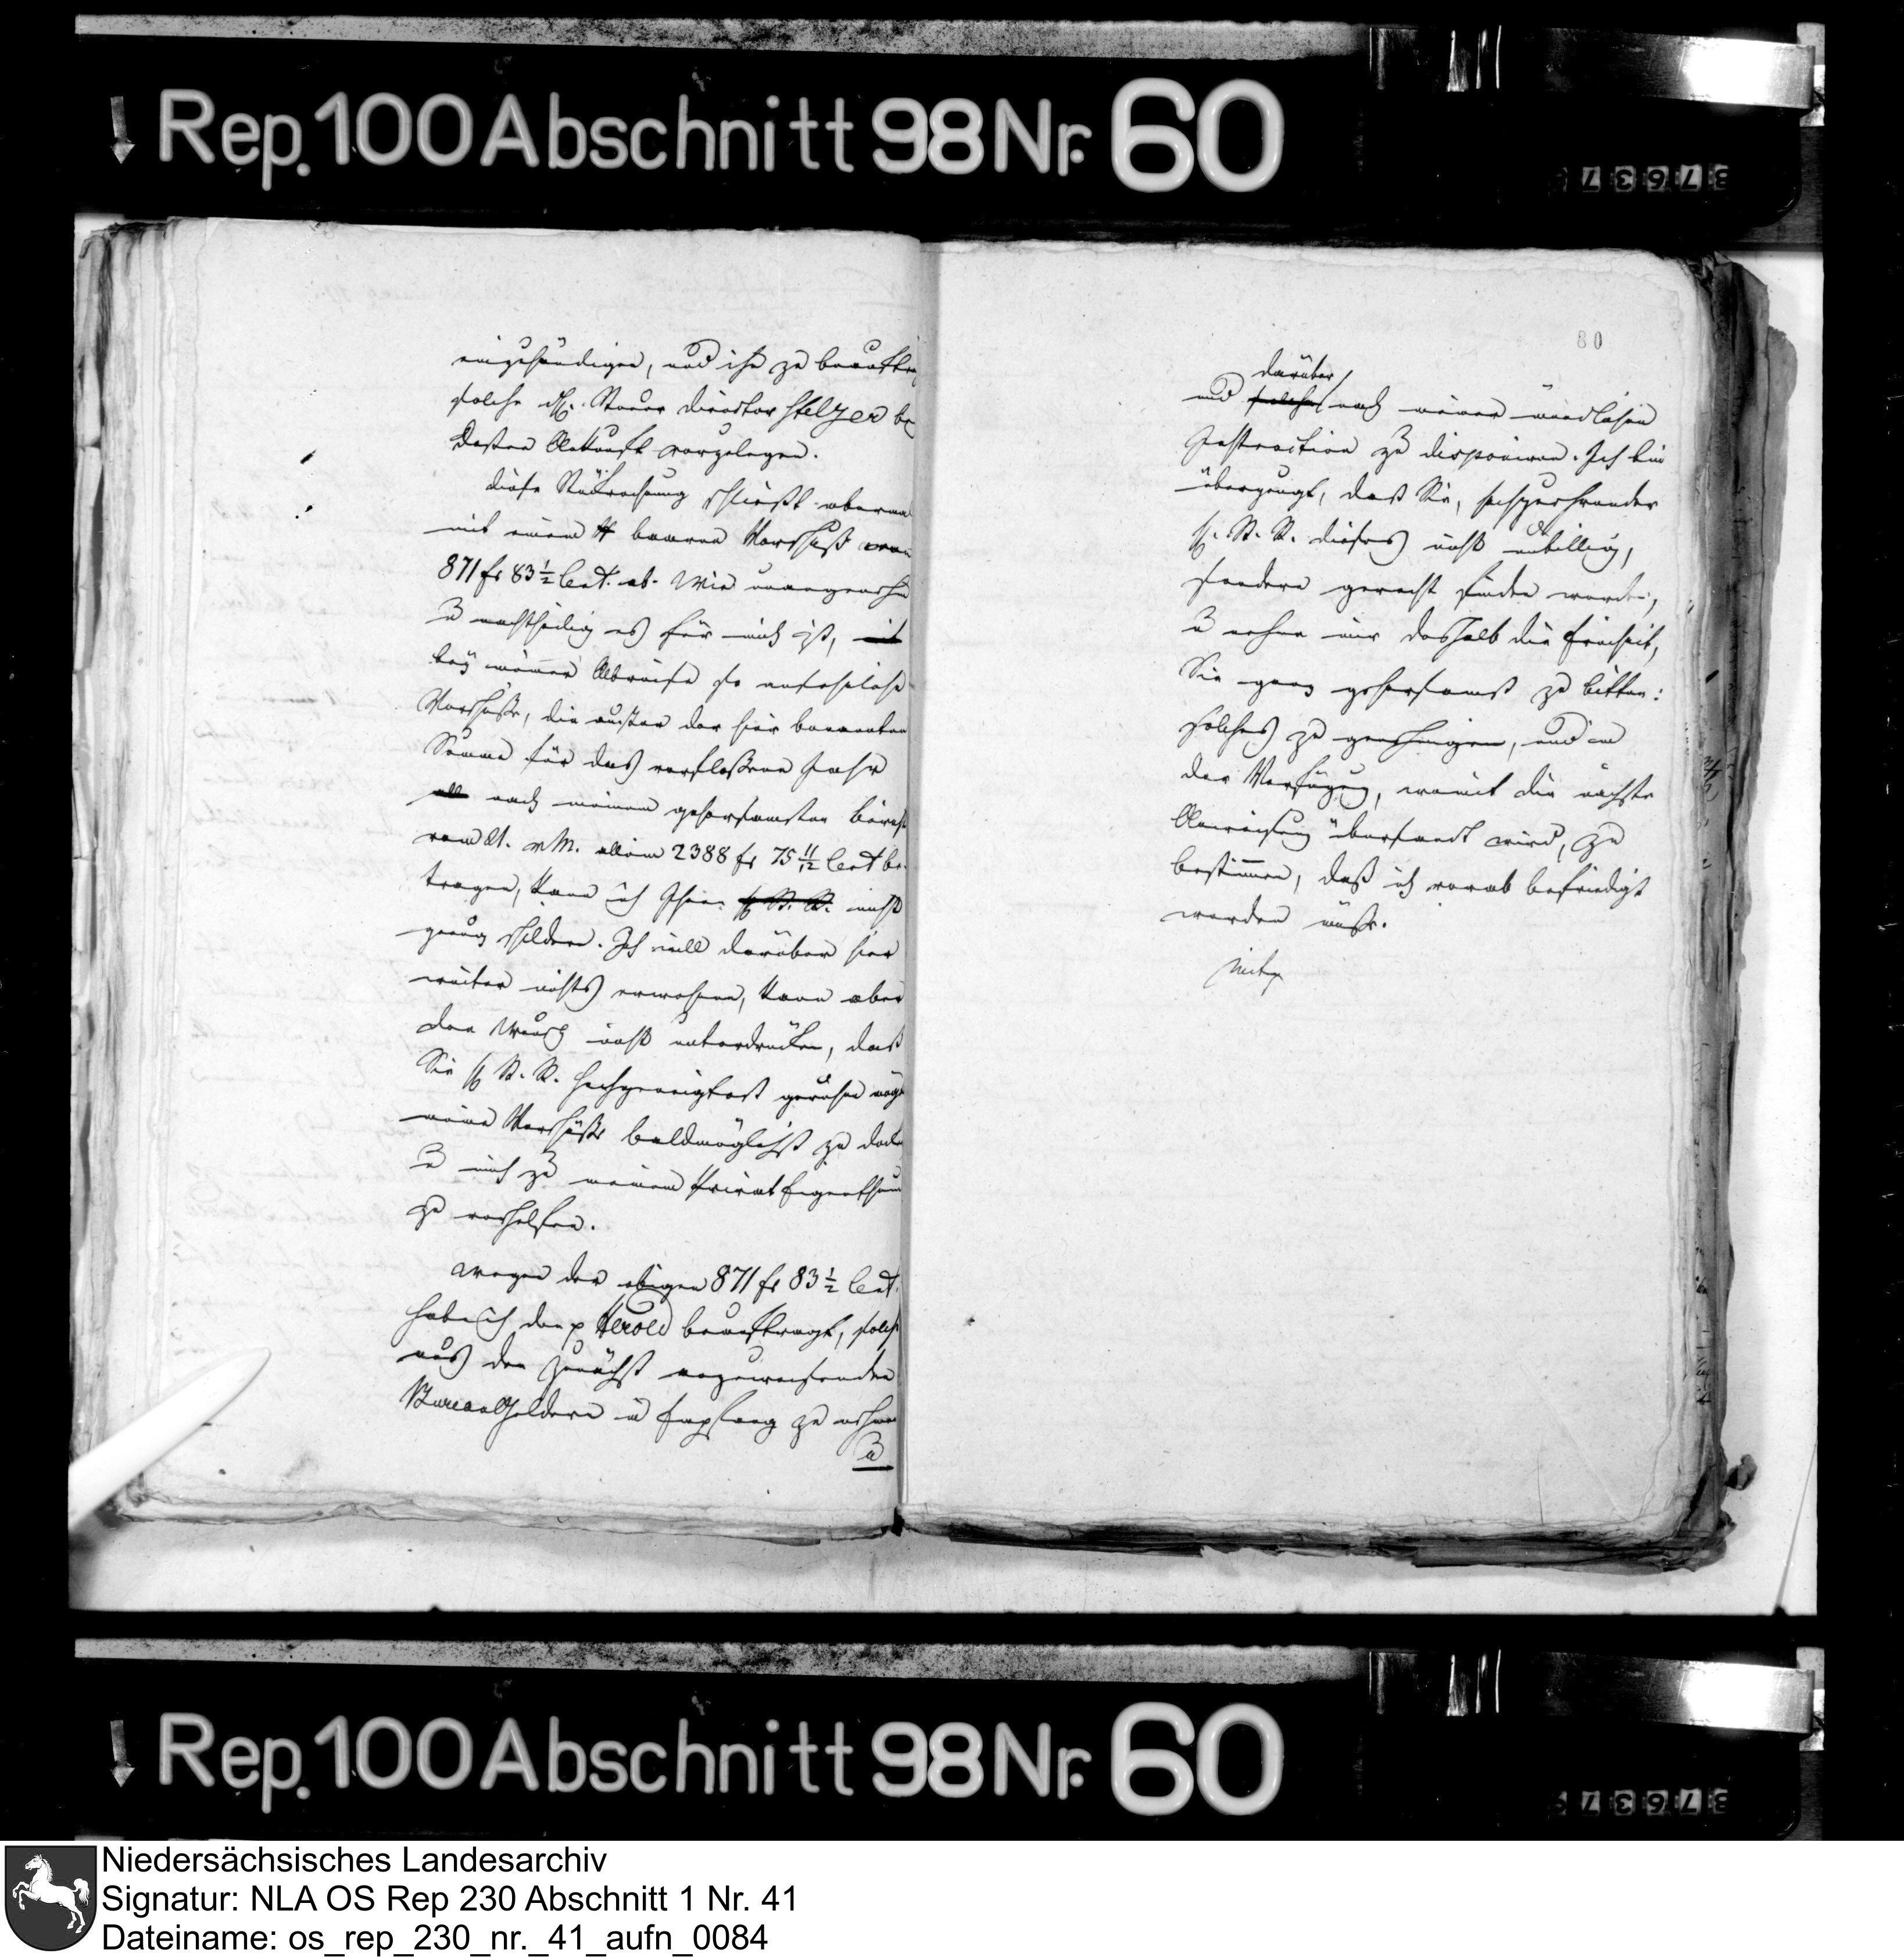 Rep. 100 Abschnitt 98 Nr. 60
37637
einzuhändigen, und ihn zu beauftra
solche H. Steuer Director Stelzer be
dessen Ankunft vorzulegen.
Diese Rückrechnung schließt aberma
mit einem baaren Vorschuß von
871 fr 83 1/2 Cent. ab. Wie unangenehm
u nachtheilig es für mich ist,
bey meiner Abreise so ansehnliche
Vorschüße, die außer der hier benannten
Summe für das verflossene Jahr
nach meinem gehorsamsten Bericht
vom v. M. allein 2388 fr 75 11/12 Cent be-
tragen, kann ich Ihnen nicht
genug schildern. Ich will darüber hier
weiter nichts erwehnen, kann aber
den Wunsch nicht unterdrücken, daß
Sie H St. R. hochgeneigtest geruhen mögen
meine Vorschüße baldmöglichst zu decken
u mich zu meinem Privat Eigenthum
zu verhelfen.
Wegen der obigen 871 fr 83 1/2 Cent.
habe ich den p Herold beauftragt, solche
aus den zunächst anzuweisenden
Bureau Geldern in Empfang zu nehmen
u
80
darüber
und solche nach meiner mündlichen
Instruction zu disponiren. Ich bin
überzeugt, daß Sie, hochzuverehrender
H. St. R. dieses nicht unbillig,
sondern gerecht finden werden,
u nehme mir deshalb die Freiheit,
Sie ganz gehorsamst zu bitten:
solches zu genehmigen, und in
der Verfügung, womit die nächste
Anweisung übersandt wird, zu
bestimmen, daß ich vorab befriedigt
werden müße.
Rep. 100 Abschnitt 98 Nr. 60
37637
Niedersächsisches Landesarchiv
Signatur: NLA OS Rep 230 Abschnitt 1 Nr. 41
Dateiname: os_rep_230_nr._41_aufn_0084